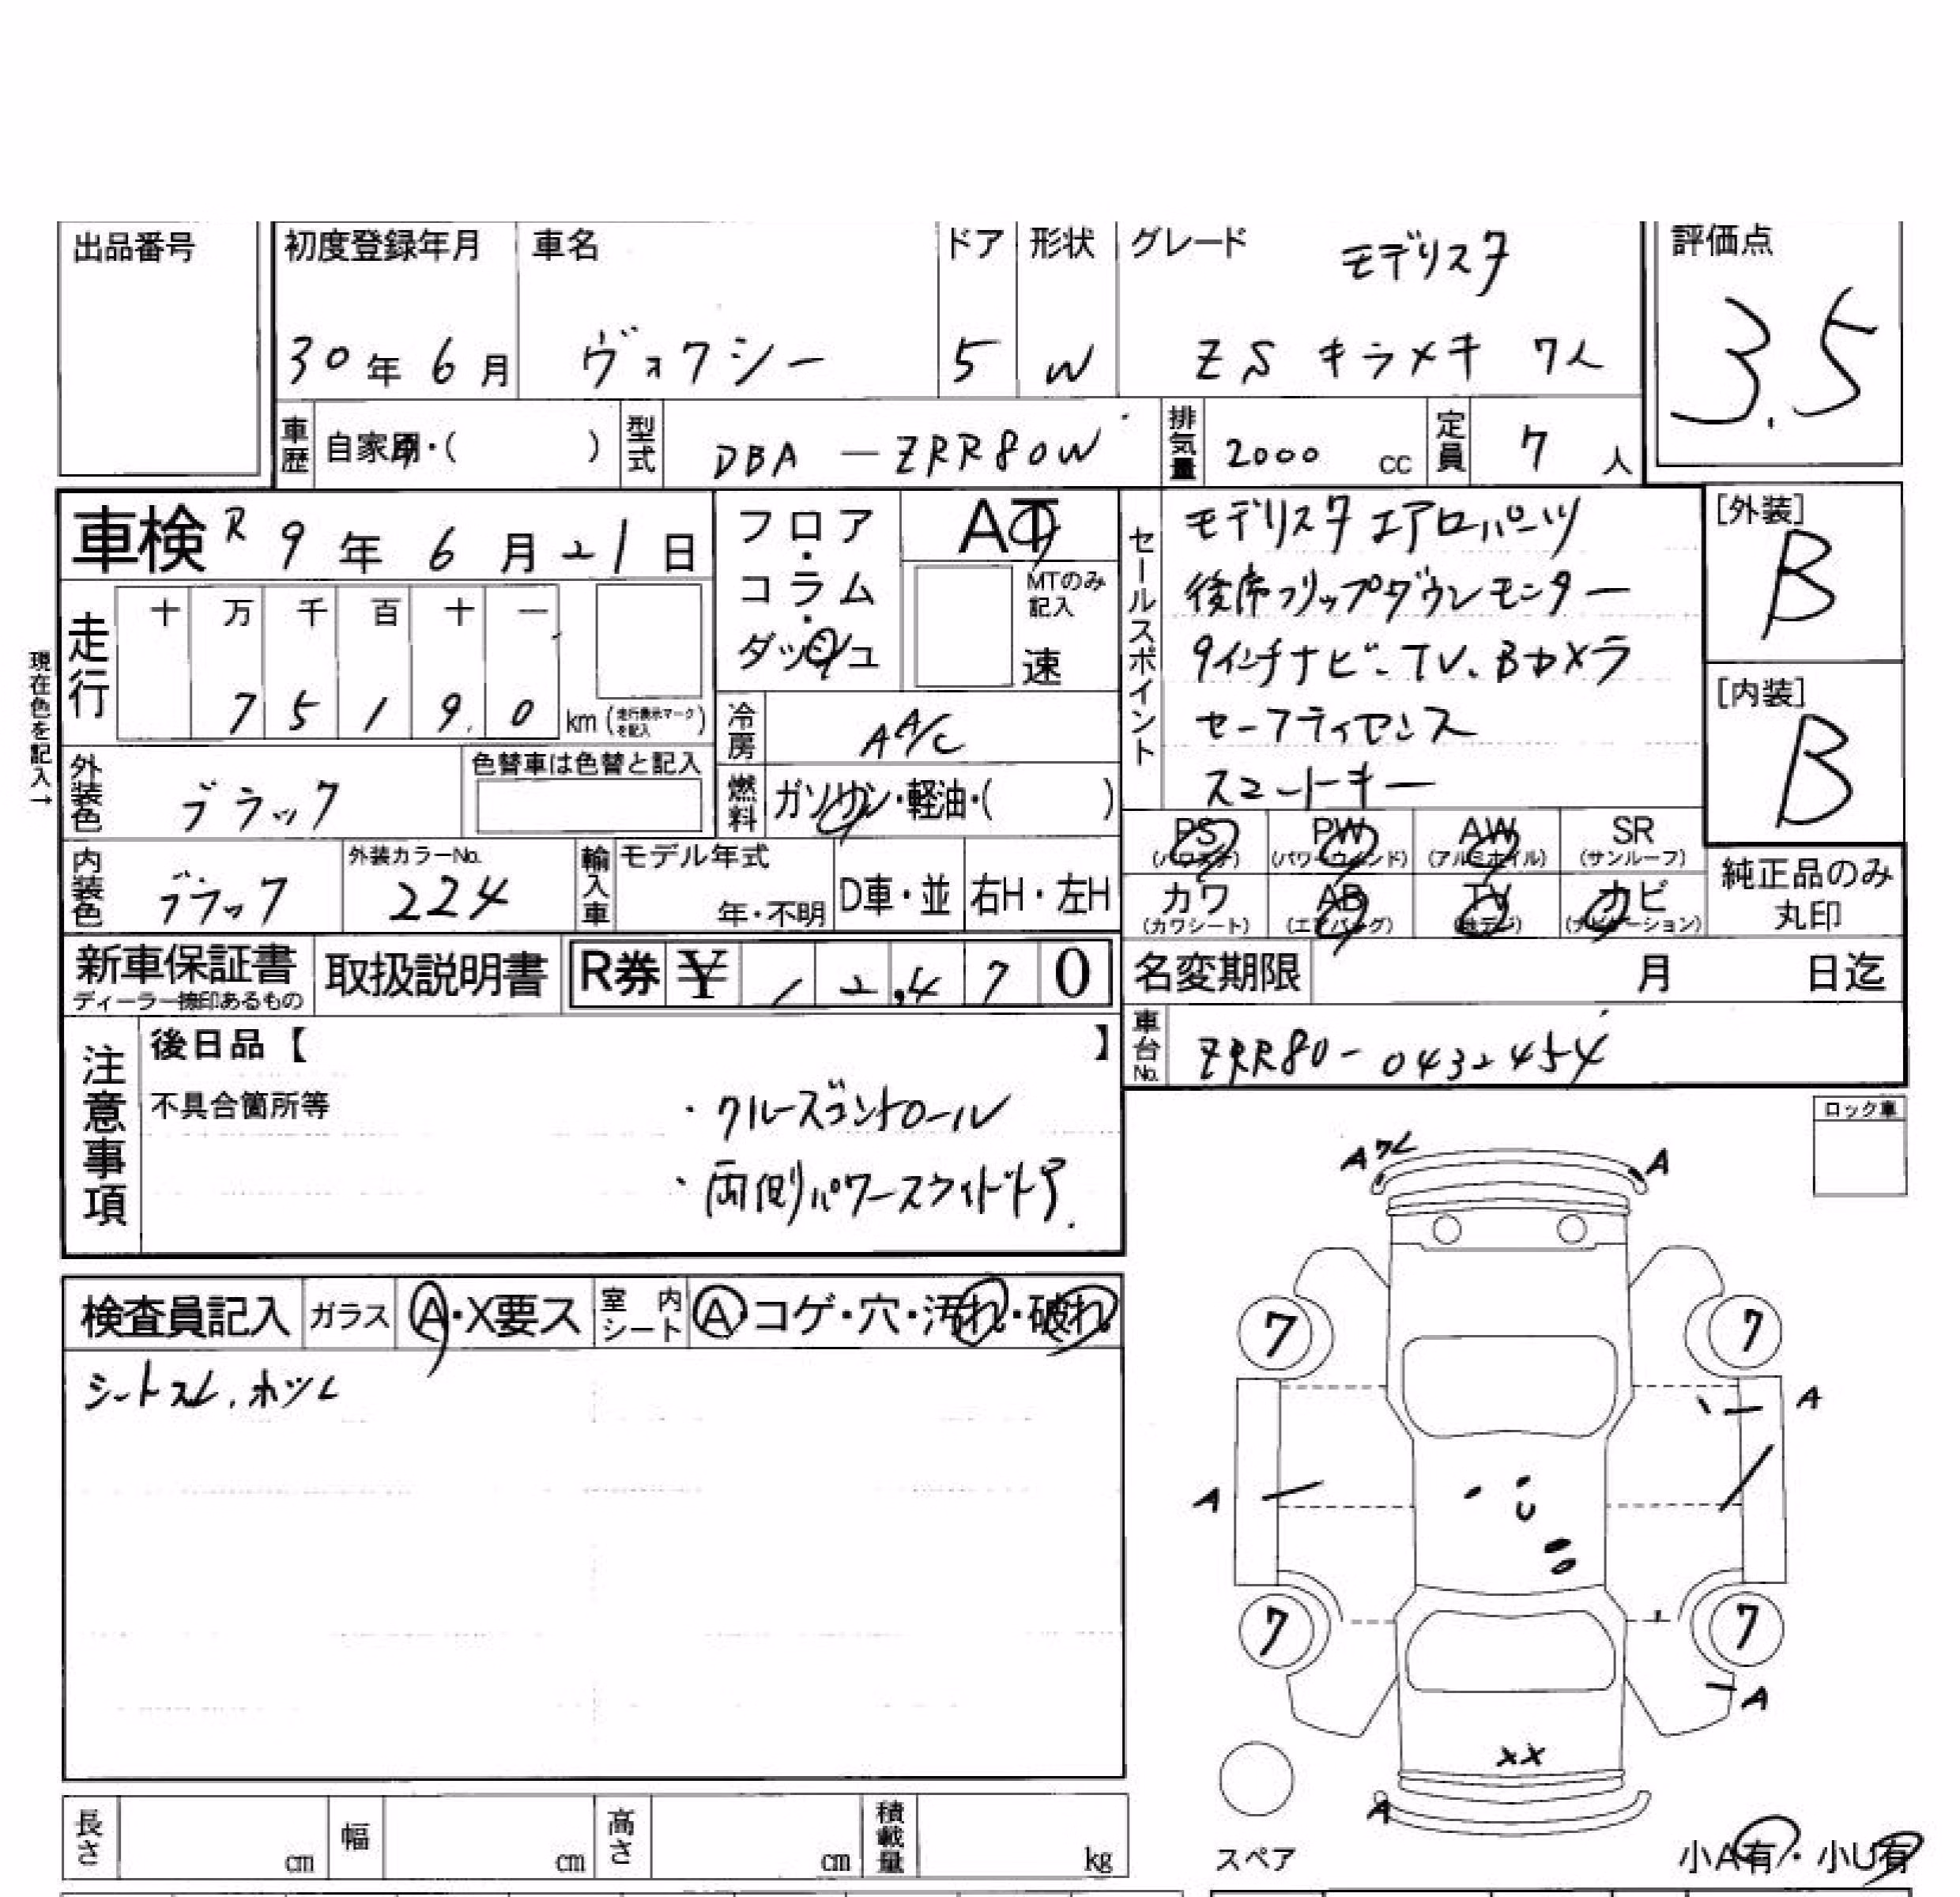 出品番号
初度登録年月 車名 ドア 形状 グレード モデリスタ 評価点
30年6月 ヴォクシー 5 W ZS キラメキ 7人 3.5
車歴 自家用・( ) 型式 DBA-ZRR80W 排気量 2000 cc 定員 7人
車検 R9年6月21日 フロア・コラム・ダッシュ AT
MTのみ記入 速
セールスポイント
モデリスタエアロパーツ
後席フリップダウンモニター
9インチナビ.TV.Bカメラ
セーフティセンス
スマートキー
[外装] B
[内装] B
現在色を記入→
走行 十万千百十一
75190 km (走行表示マークを記入)
冷房 AA/C
外装色 ブラック 色替車は色替と記入
燃料 ガソリン・軽油・( )
PS (パワステ) PW (パワーウインド) AW (アルミホイル) SR (サンルーフ)
カワ (カワシート) AB (エアバッグ) TV (地デジ) ナビ (ナビゲーション)
純正品のみ丸印
内装色 ブラック 外装カラーNo. 224 輸入車 モデル年式 年・不明 D車・並 右H・左H
新車保証書 ディーラー捺印あるもの 取扱説明書 R券 ¥12,470
名変期限 月 日迄
車台No. ZRR80-0432454
注意事項 後日品【 】
不具合箇所等
・クルーズコントロール
・両側パワースライドドア.
ロック車
検査員記入 ガラス A・X要ス 室内シート A・コゲ・穴・汚れ・破れ
シートスレ.ホツレ
Aワレ A
7 7
A
A
U
7 7
A
XX
A
スペア
小A有・小U有
長さ cm 幅 cm 高さ cm 積載量 kg